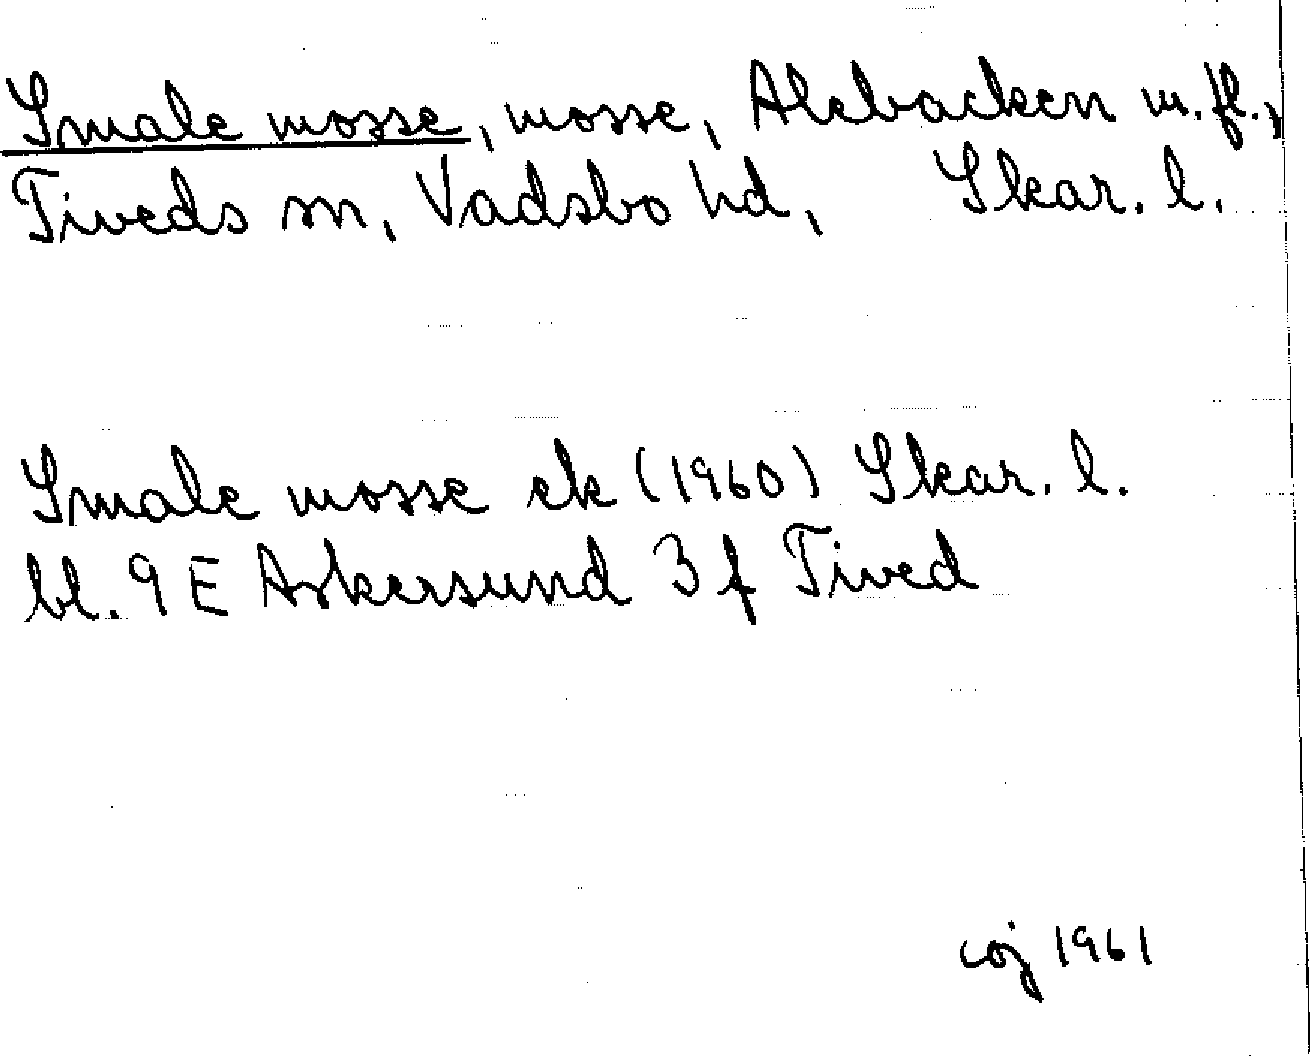 Smale mosse, mosse, Alebacken m.fl.,
Tiveds sn, Vadsbo hd, Skar. l.
Smale mosse ek (1960) Skar. l.
bl. 9 E Askersund 3 f Tived
coj 1961